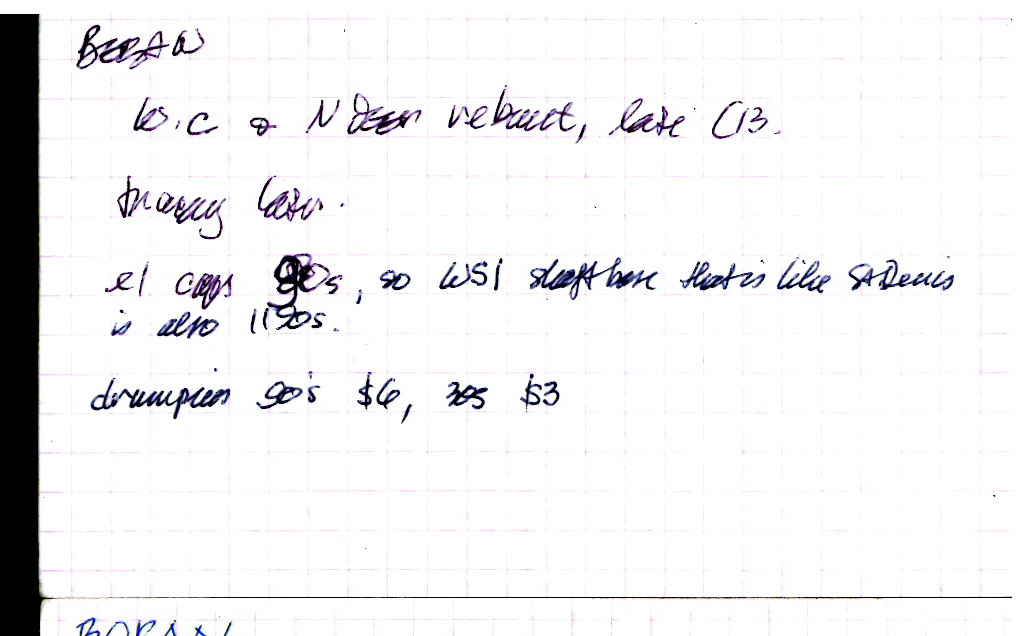 BORAN
W.c & N door rebuilt, late C13.
tracery later.
el caps 90s, so WS1 shaft base that is like St Denis
is also 1190s.
drumpier 90's $6, $3
BORAN